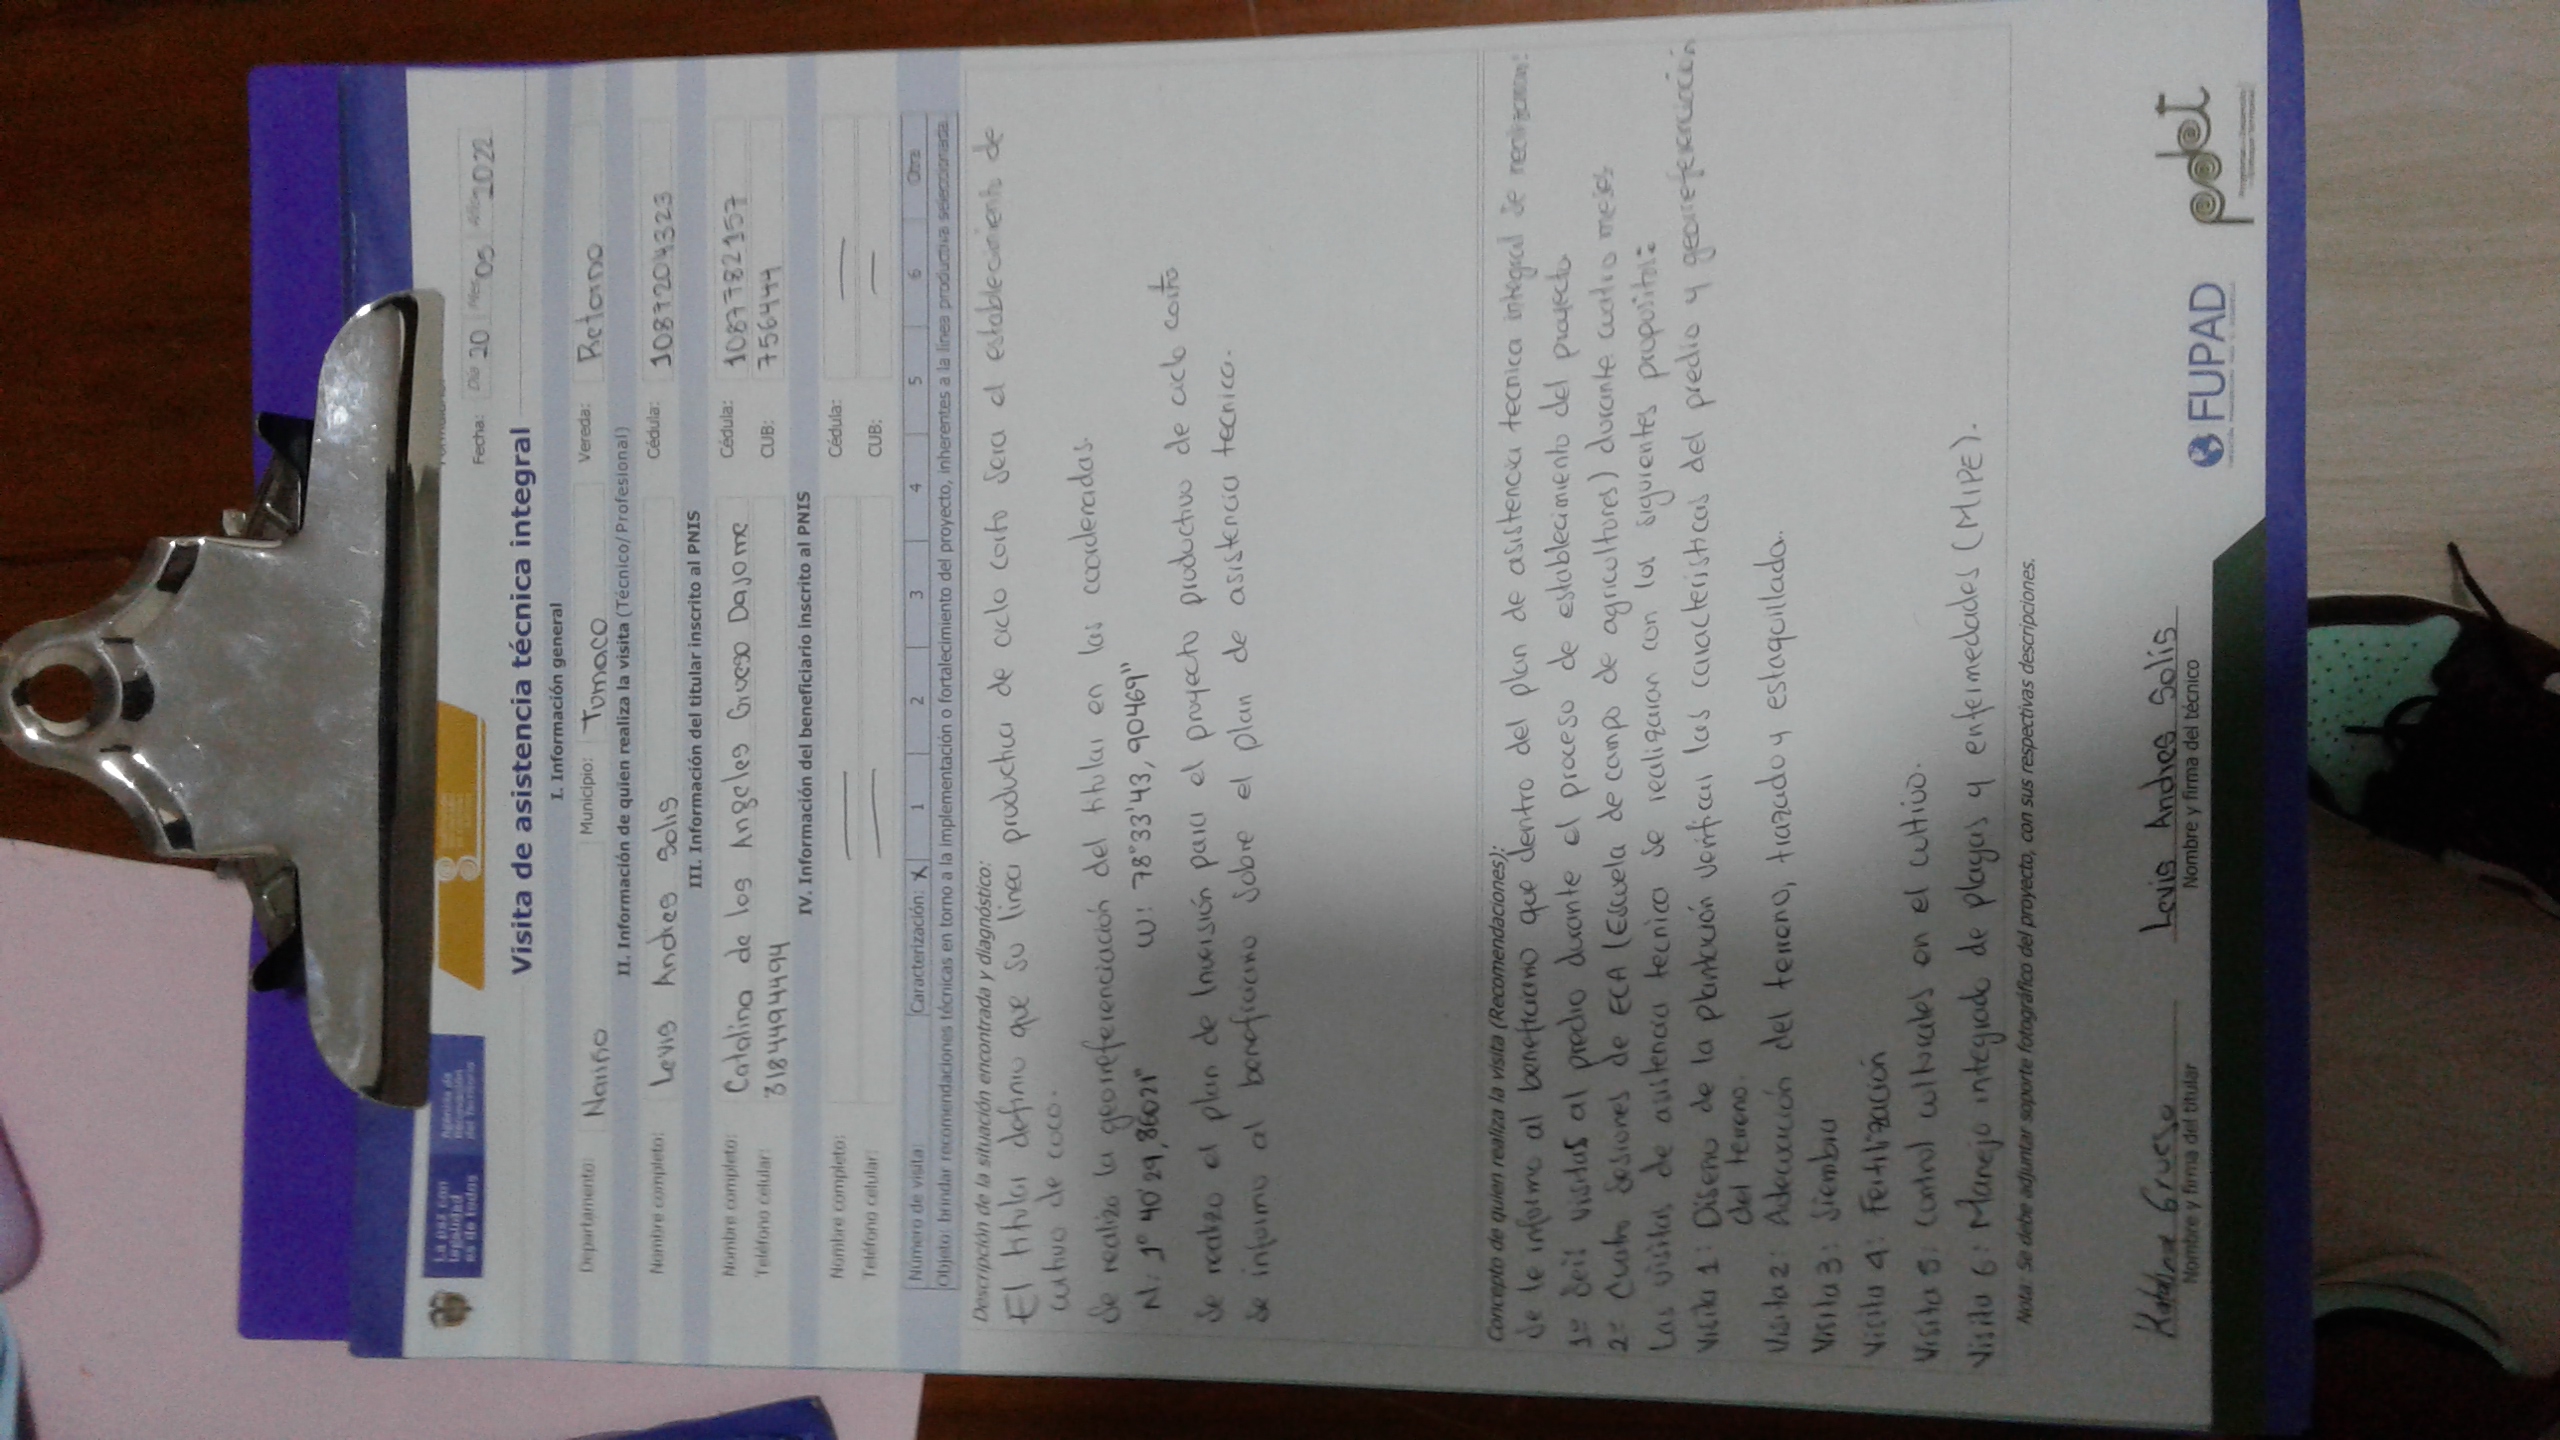 La paz con
legalidad
es de todos
Agencia de
Renovación
del Territorio
Fecha: Día 20 Mes 05 Año 2022
Visita de asistencia técnica integral
I. Información general
Departamento: Nariño Municipio: Tumaco Vereda: Retorno
II. Información de quien realiza la visita (Técnico/Profesional)
Nombre completo: Levis Andres Solis Cédula: 1087204323
III. Información del titular inscrito al PNIS
Nombre completo: Catalina de los Angeles Grueso Dajome Cédula: 1087782157
Teléfono celular: 3184494494 CUB: 756444
IV. Información del beneficiario inscrito al PNIS
Nombre completo: — Cédula: —
Teléfono celular: — CUB: —
Número de visita: Caracterización: X 1 2 3 4 5 6 Otra
Objeto: brindar recomendaciones técnicas en torno a la implementación o fortalecimiento del proyecto, inherentes a la línea productiva seleccionada.
Descripción de la situación encontrada y diagnóstico:
El titular definio que su linea productiva de ciclo corto sera el establecimiento de
cultivo de coco.
Se realizo la georreferenciación del titular en las coordenadas.
N: 1° 40'29,86021" W: 78°33'43,90469"
Se realizo el plan de Inversión para el proyecto productivo de ciclo corto
Se informo al beneficiario sobre el plan de asistencia tecnica.
Concepto de quien realiza la visita (Recomendaciones):
Se le informo al beneficiario que dentro del plan de asistencia tecnica integral se realizaran:
1= Seis visitas al predio durante el proceso de establecimiento del proyecto
2= Cuatro Sesiones de ECA (Escuela de campo de agricultores) durante cuatro meses
Las visitas de asistencia tecnica se realizaran con los siguientes propositos:
Visita 1: Diseno de la plantación verificar las caracteristicas del predio y georreferenciación
del terreno.
Visita 2: Adecuación del terreno, trazado y estaquillado.
Visita 3: Siembra
Visita 4: Fertilización
Visita 5: Control culturales en el cultivo.
Visita 6: Manejo integrado de plagas y enfermedades (MIPE).
Nota: Se debe adjuntar soporte fotográfico del proyecto, con sus respectivas descripciones.
Grueso Levis Andres Solis
Nombre y firma del titular Nombre y firma del técnico
FUPAD pdet